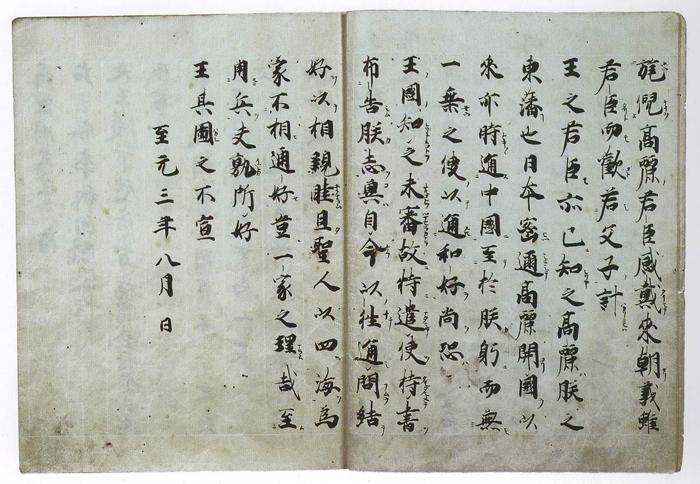 旄倪高麗君臣感戴來朝義雖
君臣而歡若父子計
王之君臣亦已知之高麗朕之
東藩也日本密邇高麗開國以
來亦時通中國至於朕躬而無
一乘之使以通和好尚恐
王國知之未審故特遣使持書
布告朕志冀自今以往通問結
好以相親睦且聖人以四海為
家不相通好豈一家之理哉至
用兵夫孰所好
王其圖之不宣
至元三年八月日